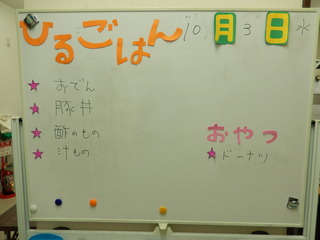 ひるごはん 10月3日 水
おでん
豚丼
酢のもの
汁もの
おやつ
ドーナツ